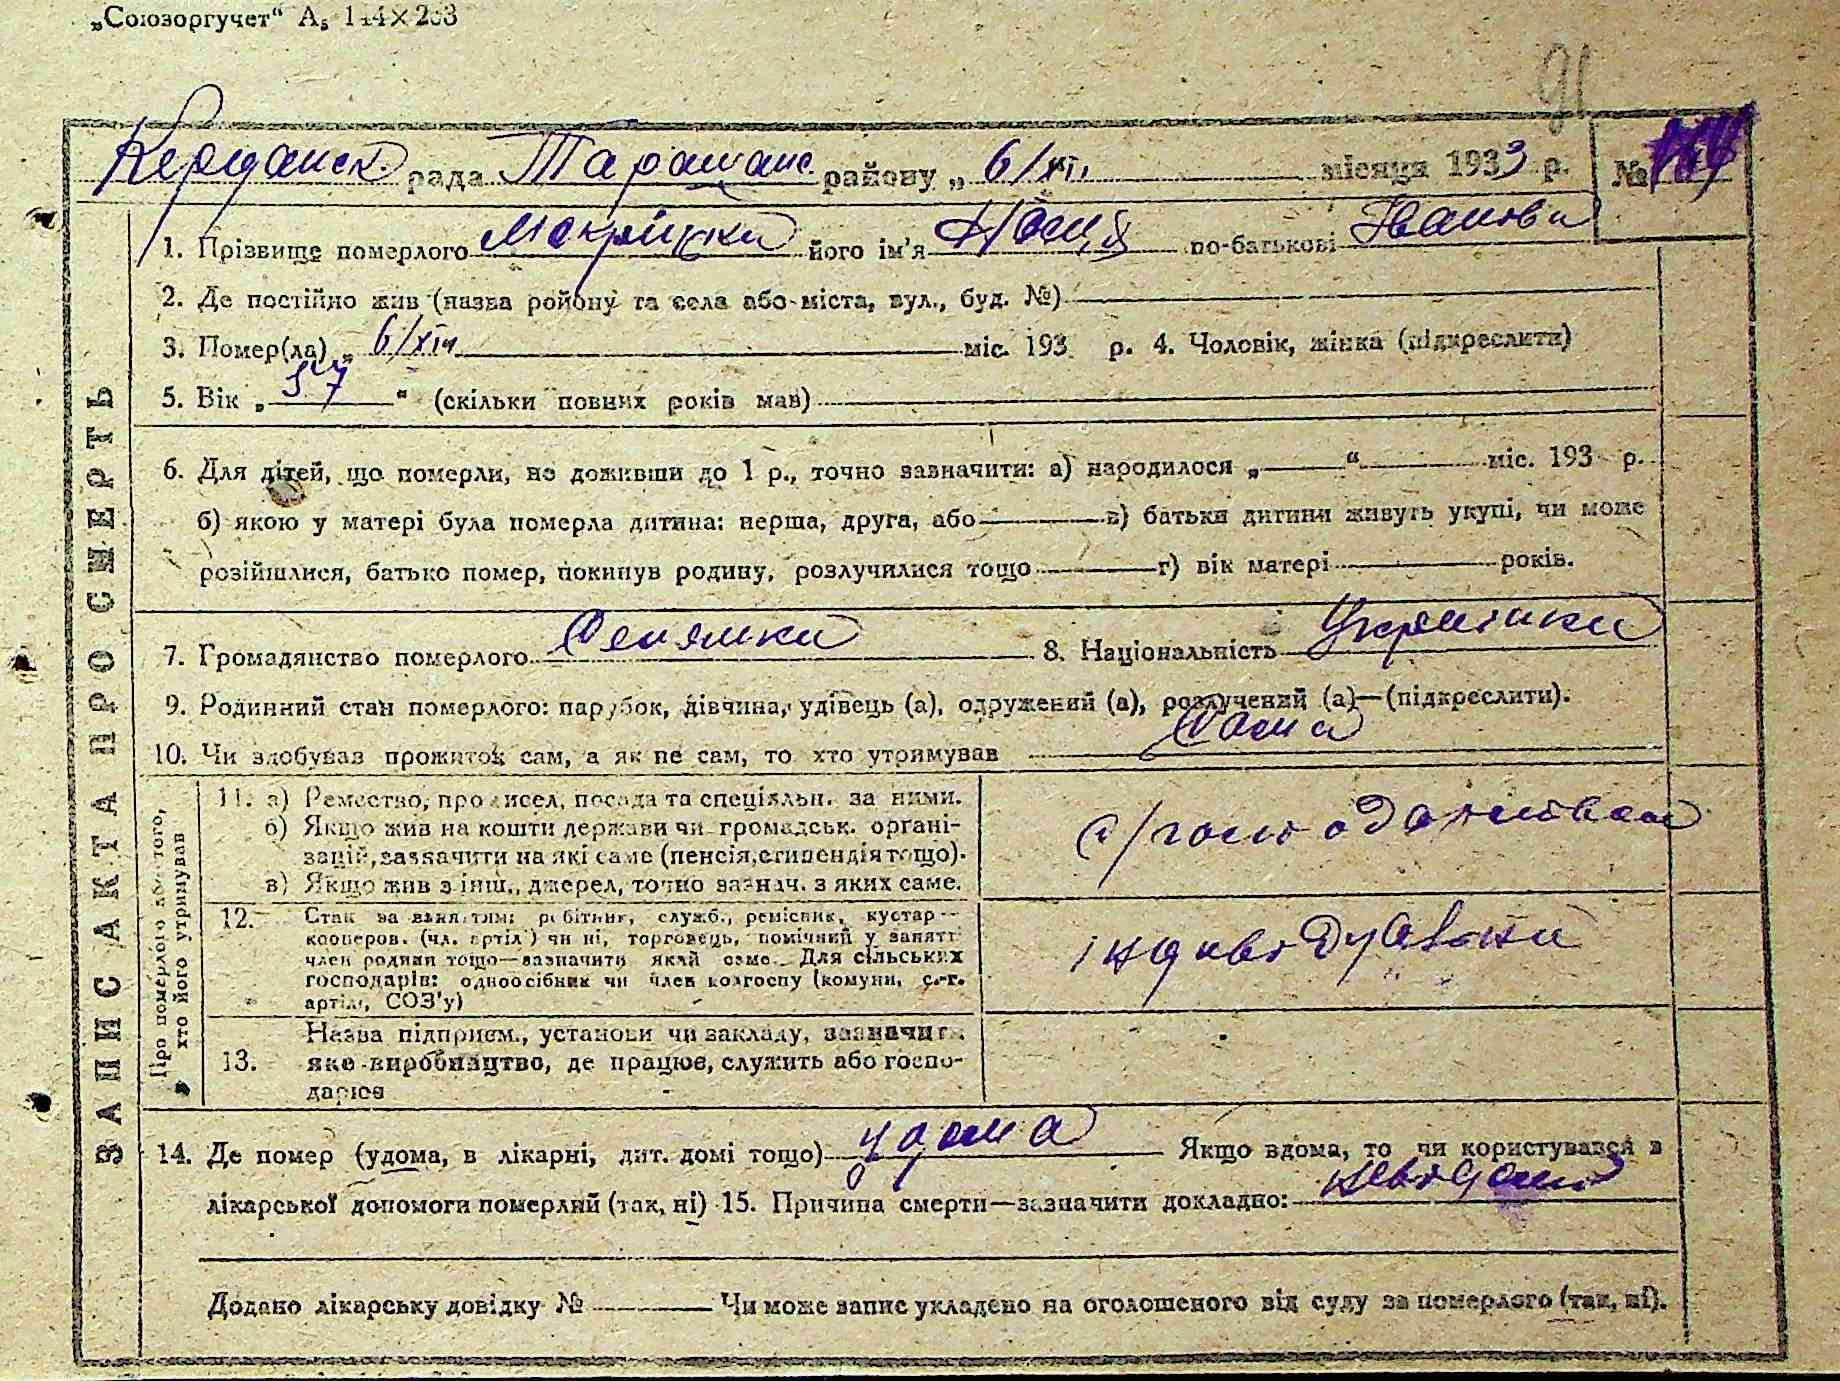 „Союзоргучет“ А₅ 144×203
91
Керданск. рада Таращанс. району „ 6/XII місяця 1933 р. №
1. Прізвище померлого його ім'я Настя по-батькові Іванова
2. Де постійно жив (назва району та села або міста, вул., буд. №)
3. Помер(ла) „ 6/XII міс. 193 р. 4. Чоловік, жінка (підкреслити)
5. Вік „ 57 “ (скільки повних років мав)
6. Для дітей, що померли, не доживши до 1 р., точно зазначити: а) народилося „ “ міс. 193 р.
б) якою у матері була померла дитина: перша, друга, або в) батьки дитини живуть укупі, чи може
розійшлися, батько помер, покинув родину, розлучилися тощо г) вік матері років.
7. Громадянство померлого Селянка 8. Національність Українка
9. Родинний стан померлого: парубок, дівчина, удівець (а), одружений (а), розлучений (а)—(підкреслити).
10. Чи здобував прожиток сам, а як не сам, то хто утримував Сама
ЗАПИС АКТА ПРО СМЕРТЬ
Про померлого або того,
хто його утримував
11. а) Ремество, промисел, посада та спеціяльн. за ними.
б) Якщо жив на кошти держави чи громадськ. органі-
зацій, зазначити на які саме (пенсія, стипендія тощо).
в) Якщо жив з інш., джерел, точно зазнач. з яких саме.
с/господарством
12. Стан за заняттям: робітник, служб., ремісник, кустар—
кооперов. (чл. артіл.) чи ні, торговець, помічний у занятті
член родини тощо—зазначити який саме. Для сільських
господарів: одноосібник чи член колгоспу (комуни, с.-г.
артіл., СОЗ'у)
індивідуальний
13. Назва підприєм., установи чи закладу, зазначити
яке виробництво, де працює, служить або госпо-
дарює
14. Де помер (удома, в лікарні, дит. домі тощо) удома Якщо вдома, то чи користувався з
лікарської допомоги померлий (так, ні) 15. Причина смерти—зазначити докладно: невідомо
Додано лікарську довідку № Чи може запис укладено на оголошеного від суду за померлого (так, ні).